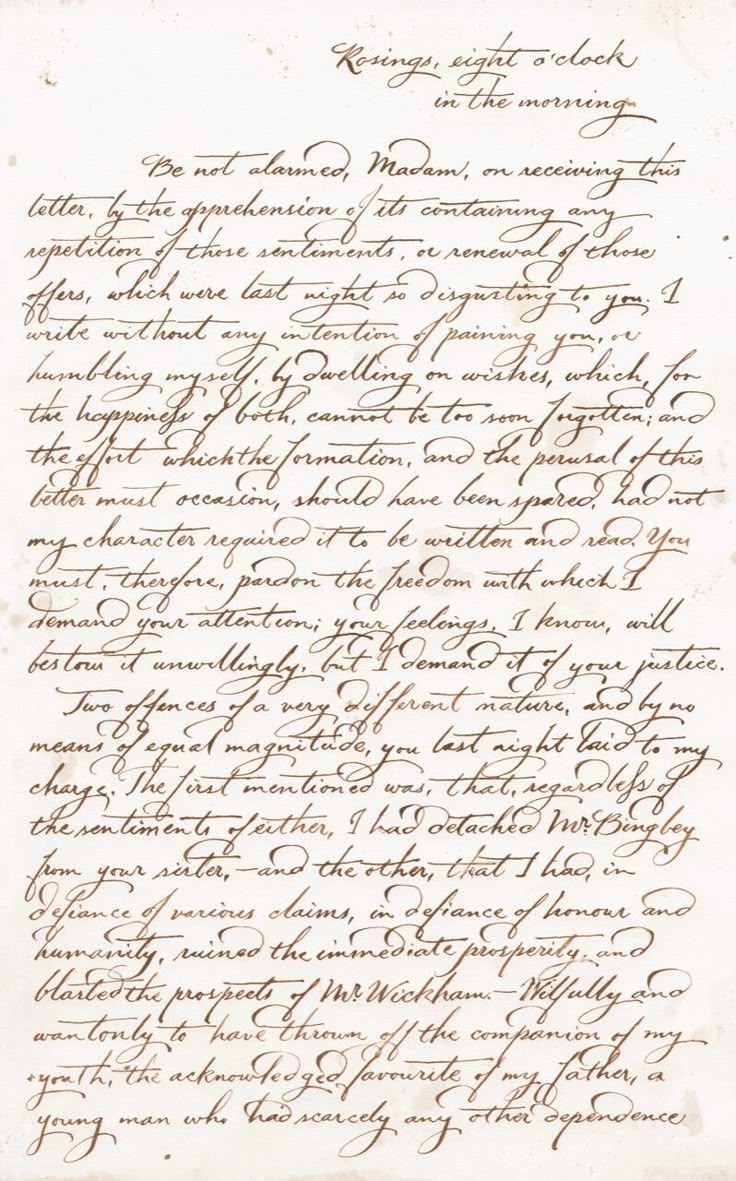 Rosings, eight o'clock
in the morning
Be not alarmed, Madam, on receiving this
letter, by the apprehension of its containing any
repetition of those sentiments, or renewal of those
offers, which were last night so disgusting to you. I
write without any intention of paining you, or
humbling myself, by dwelling on wishes, which, for
the happiness of both, cannot be too soon forgotten; and
the effort which the formation, and the perusal of this
letter must occasion, should have been spared, had not
my character required it to be written and read. You
must, therefore, pardon the freedom with which I
demand your attention; your feelings, I know, will
bestow it unwillingly, but I demand it of your justice.
Two offences of a very different nature, and by no
means of equal magnitude, you last night laid to my
charge. The first mentioned was, that, regardless of
the sentiments of either, I had detached Mr. Bingley
from your sister, —and the other, that I had, in
defiance of various claims, in defiance of honour and
humanity, ruined the immediate prosperity, and
blasted the prospects of Mr. Wickham. — Wilfully and
wantonly to have thrown off the companion of my
youth, the acknowledged favourite of my father, a
young man who had scarcely any other dependence